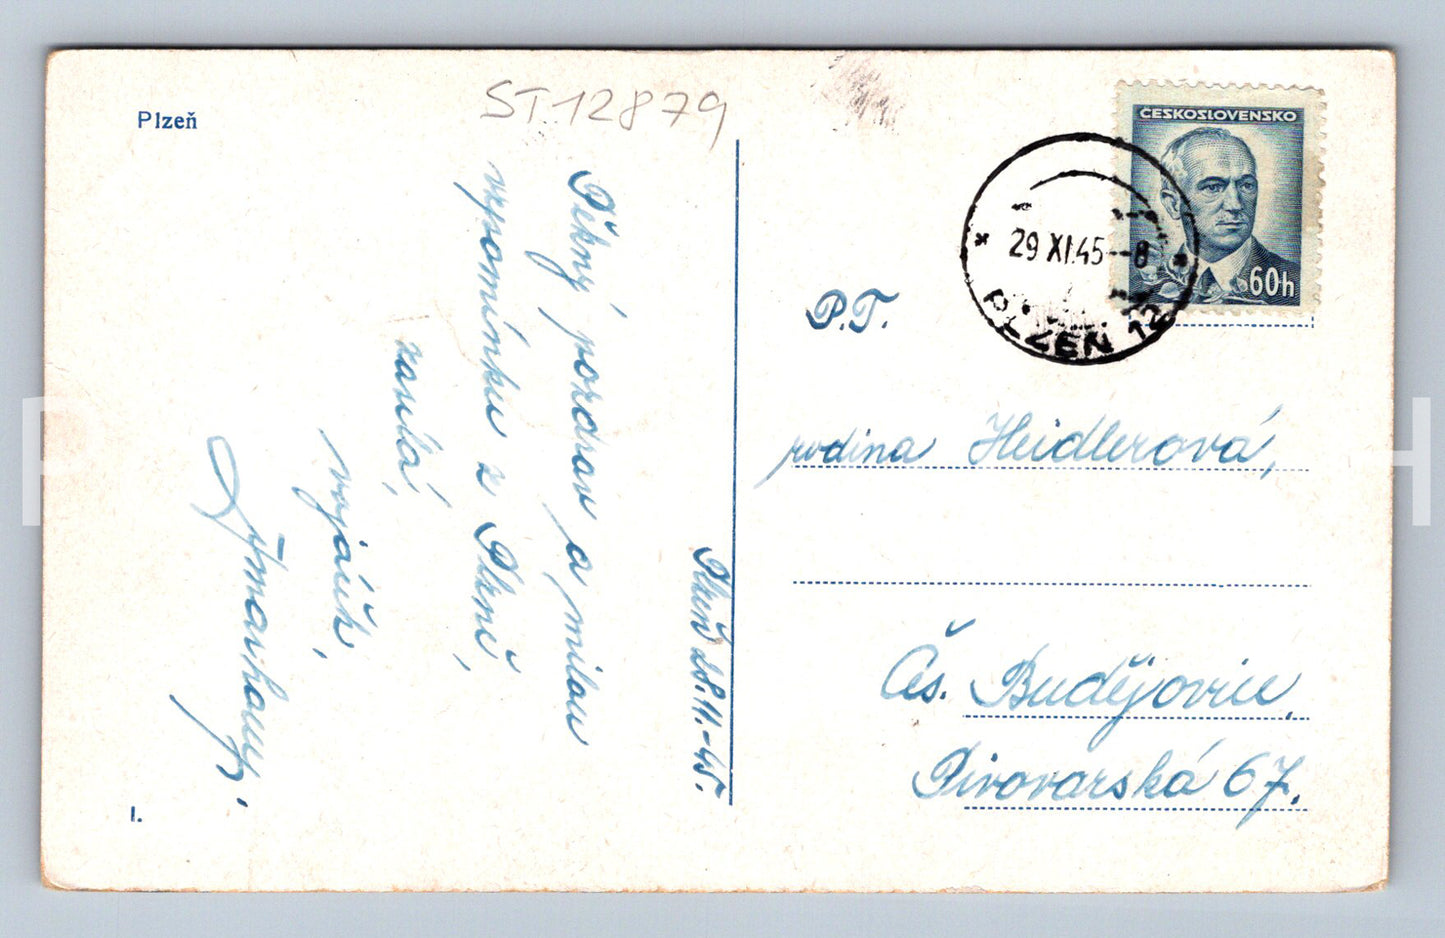 Plzeň
ST12879
Plzeň 28.11.-45.
Pěkný pozdrav a milou
vzpomínku z Plzně,
zasílá,
vojín,
P.T.
rodina Heidlerová,
Čs. Budějovice,
Pivovarská 67.
ČESKOSLOVENSKO
60h
29 XI.45--8
PLZEŇ 12
I.